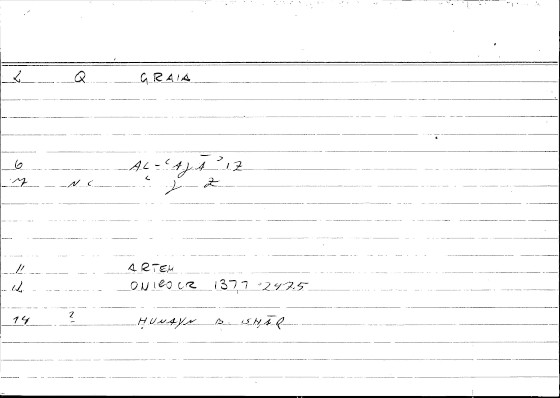 L Q GRAIA
6 AL-ʿAJĀʾIZ
7 NC ʿ J Z
11 ARTEM
12 ONIROCR 1377-2475
14 ? ḤUNAYN B. ISḤĀQ